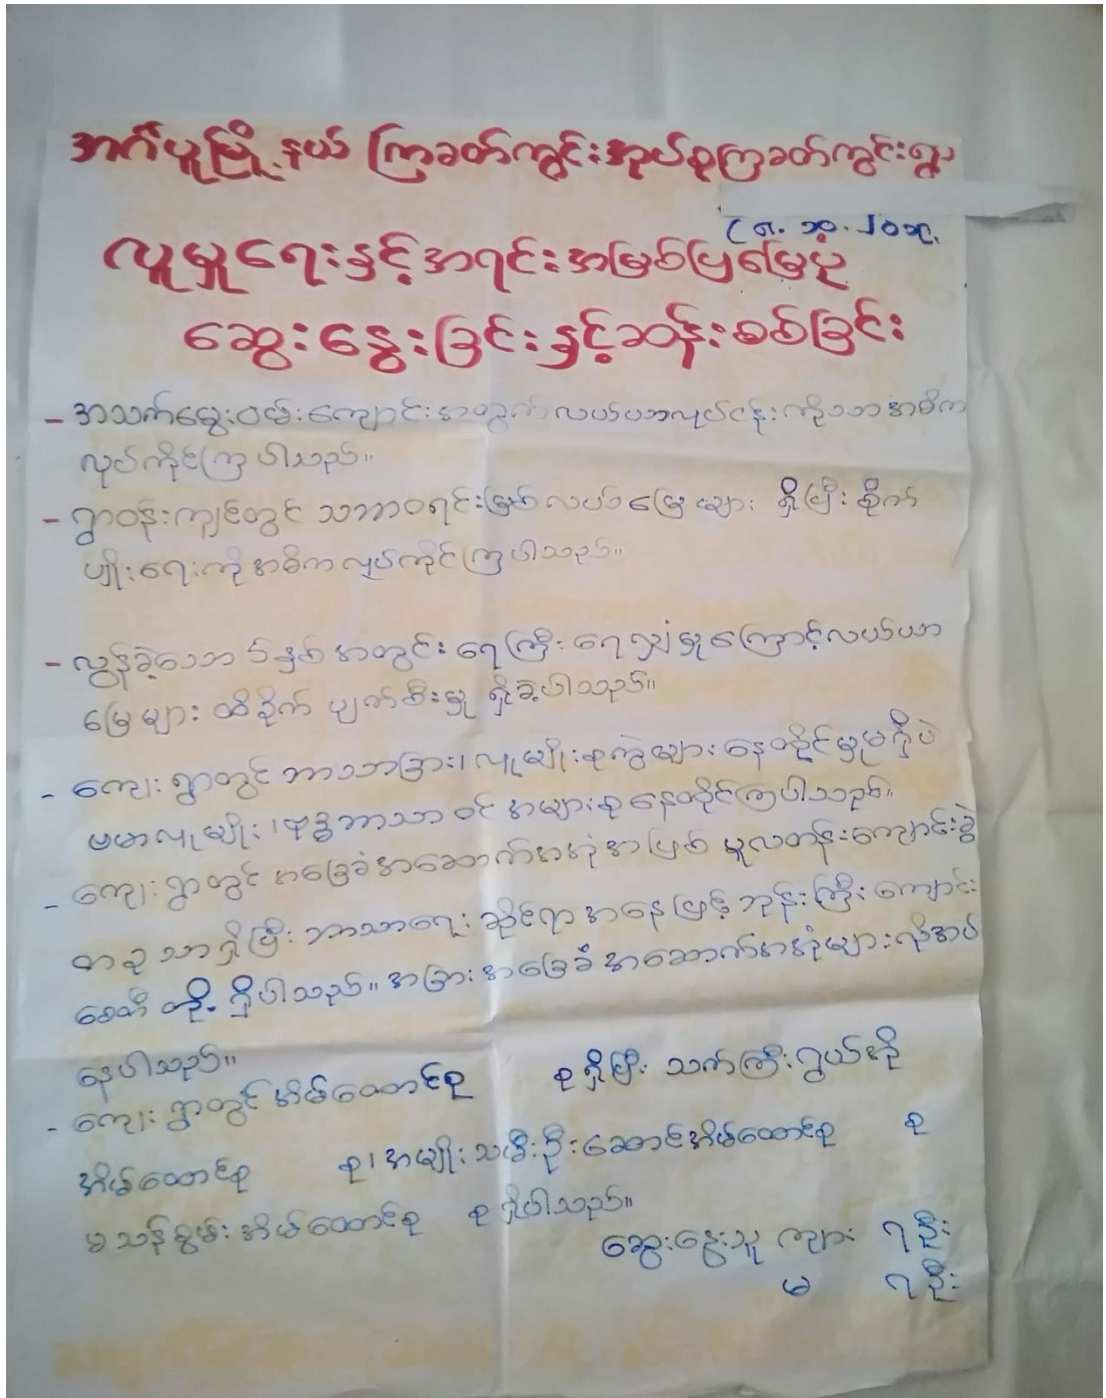 အင်္ဂပူမြို့နယ် ကြာခတ်ကွင်းအုပ်စုကြာခတ်ကွင်းရွာ
လူမှုရေးနှင့်အရင်းအမြစ်ပြမြေပုံ
ဆွေးနွေးခြင်းနှင့်ဆန်းစစ်ခြင်း
- အသက်မွေးဝမ်းကျောင်းအတွက် လယ်ယာလုပ်ငန်းကိုသာအဓိက
လုပ်ကိုင်ကြပါသည်။
- ရွာဝန်းကျင်တွင် သဘာဝရင်းမြစ်လယ်မြေများ ရှိပြီးစိုက်
ပျိုးရေးကိုအဓိကလုပ်ကိုင်ကြပါသည်။
- လွန်ခဲ့သော ၆နှစ်အတွင်း ရေကြီးရေလျှံမှုကြောင့်လယ်ယာ
မြေများ ထိခိုက်ပျက်စီးမှု ရှိခဲ့ပါသည်။
- ကျေးရွာတွင် ဘာသာခြား၊လူမျိုးစုကွဲများနေထိုင်မှုမရှိပဲ
ဗမာလူမျိုး၊ဗုဒ္ဓဘာသာဝင် အများစုနေထိုင်ကြပါသည်။
- ကျေးရွာတွင် အခြေခံအဆောက်အအုံအဖြစ် မူလတန်းကျောင်းခွဲ
တခုသာရှိပြီး ဘာသာရေးဆိုင်ရာအနေဖြင့်ဘုန်းကြီးကျောင်း
စေတီ တို့ရှိပါသည်။ အခြားအခြေခံအဆောက်အအုံများလိုအပ်
နေပါသည်။
- ကျေးရွာတွင်အိမ်ထောင်စု စုရှိပြီး သက်ကြီးရွယ်အို
အိမ်ထောင်စု စု၊အမျိုးသမီးဦးဆောင်အိမ်ထောင်စု စု
မသန်စွမ်းအိမ်ထောင်စု စုရှိပါသည်။
ဆွေးနွေးသူ ကျား ၇ဦး
မ ၇ဦး